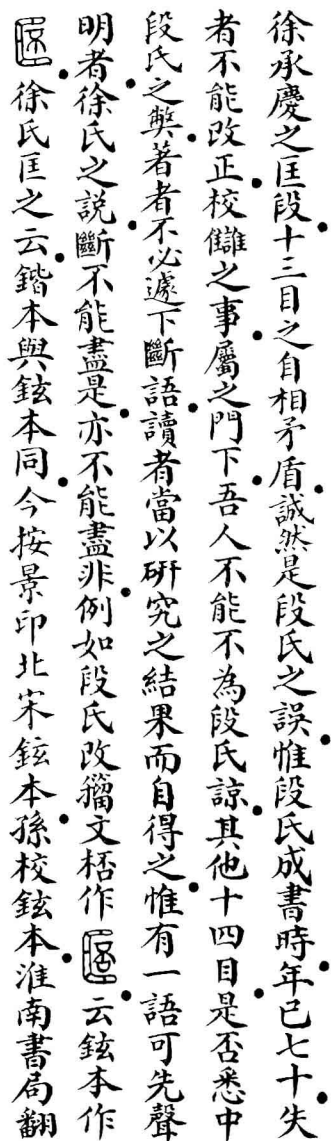 徐承慶之匡段十三目之自相矛盾誠然是段氏之誤惟段氏成書時年已七十失
者不能改正校讎之事屬之門下吾人不能不為段氏諒其他十四目是否悉中
段氏之弊著者不必遽下斷語讀者當以研究之結果而自得之惟有一語可先聲
明者徐氏之說斷不能盡是亦不能盡非例如段氏改籀文桮作云鉉本作
徐氏匡之云鍇本與鉉本同今按景印北宋鉉本孫校鉉本淮南書局翻